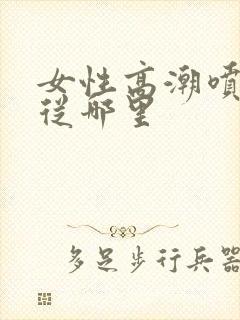 女性高潮噴
從哪里
多足步行兵器